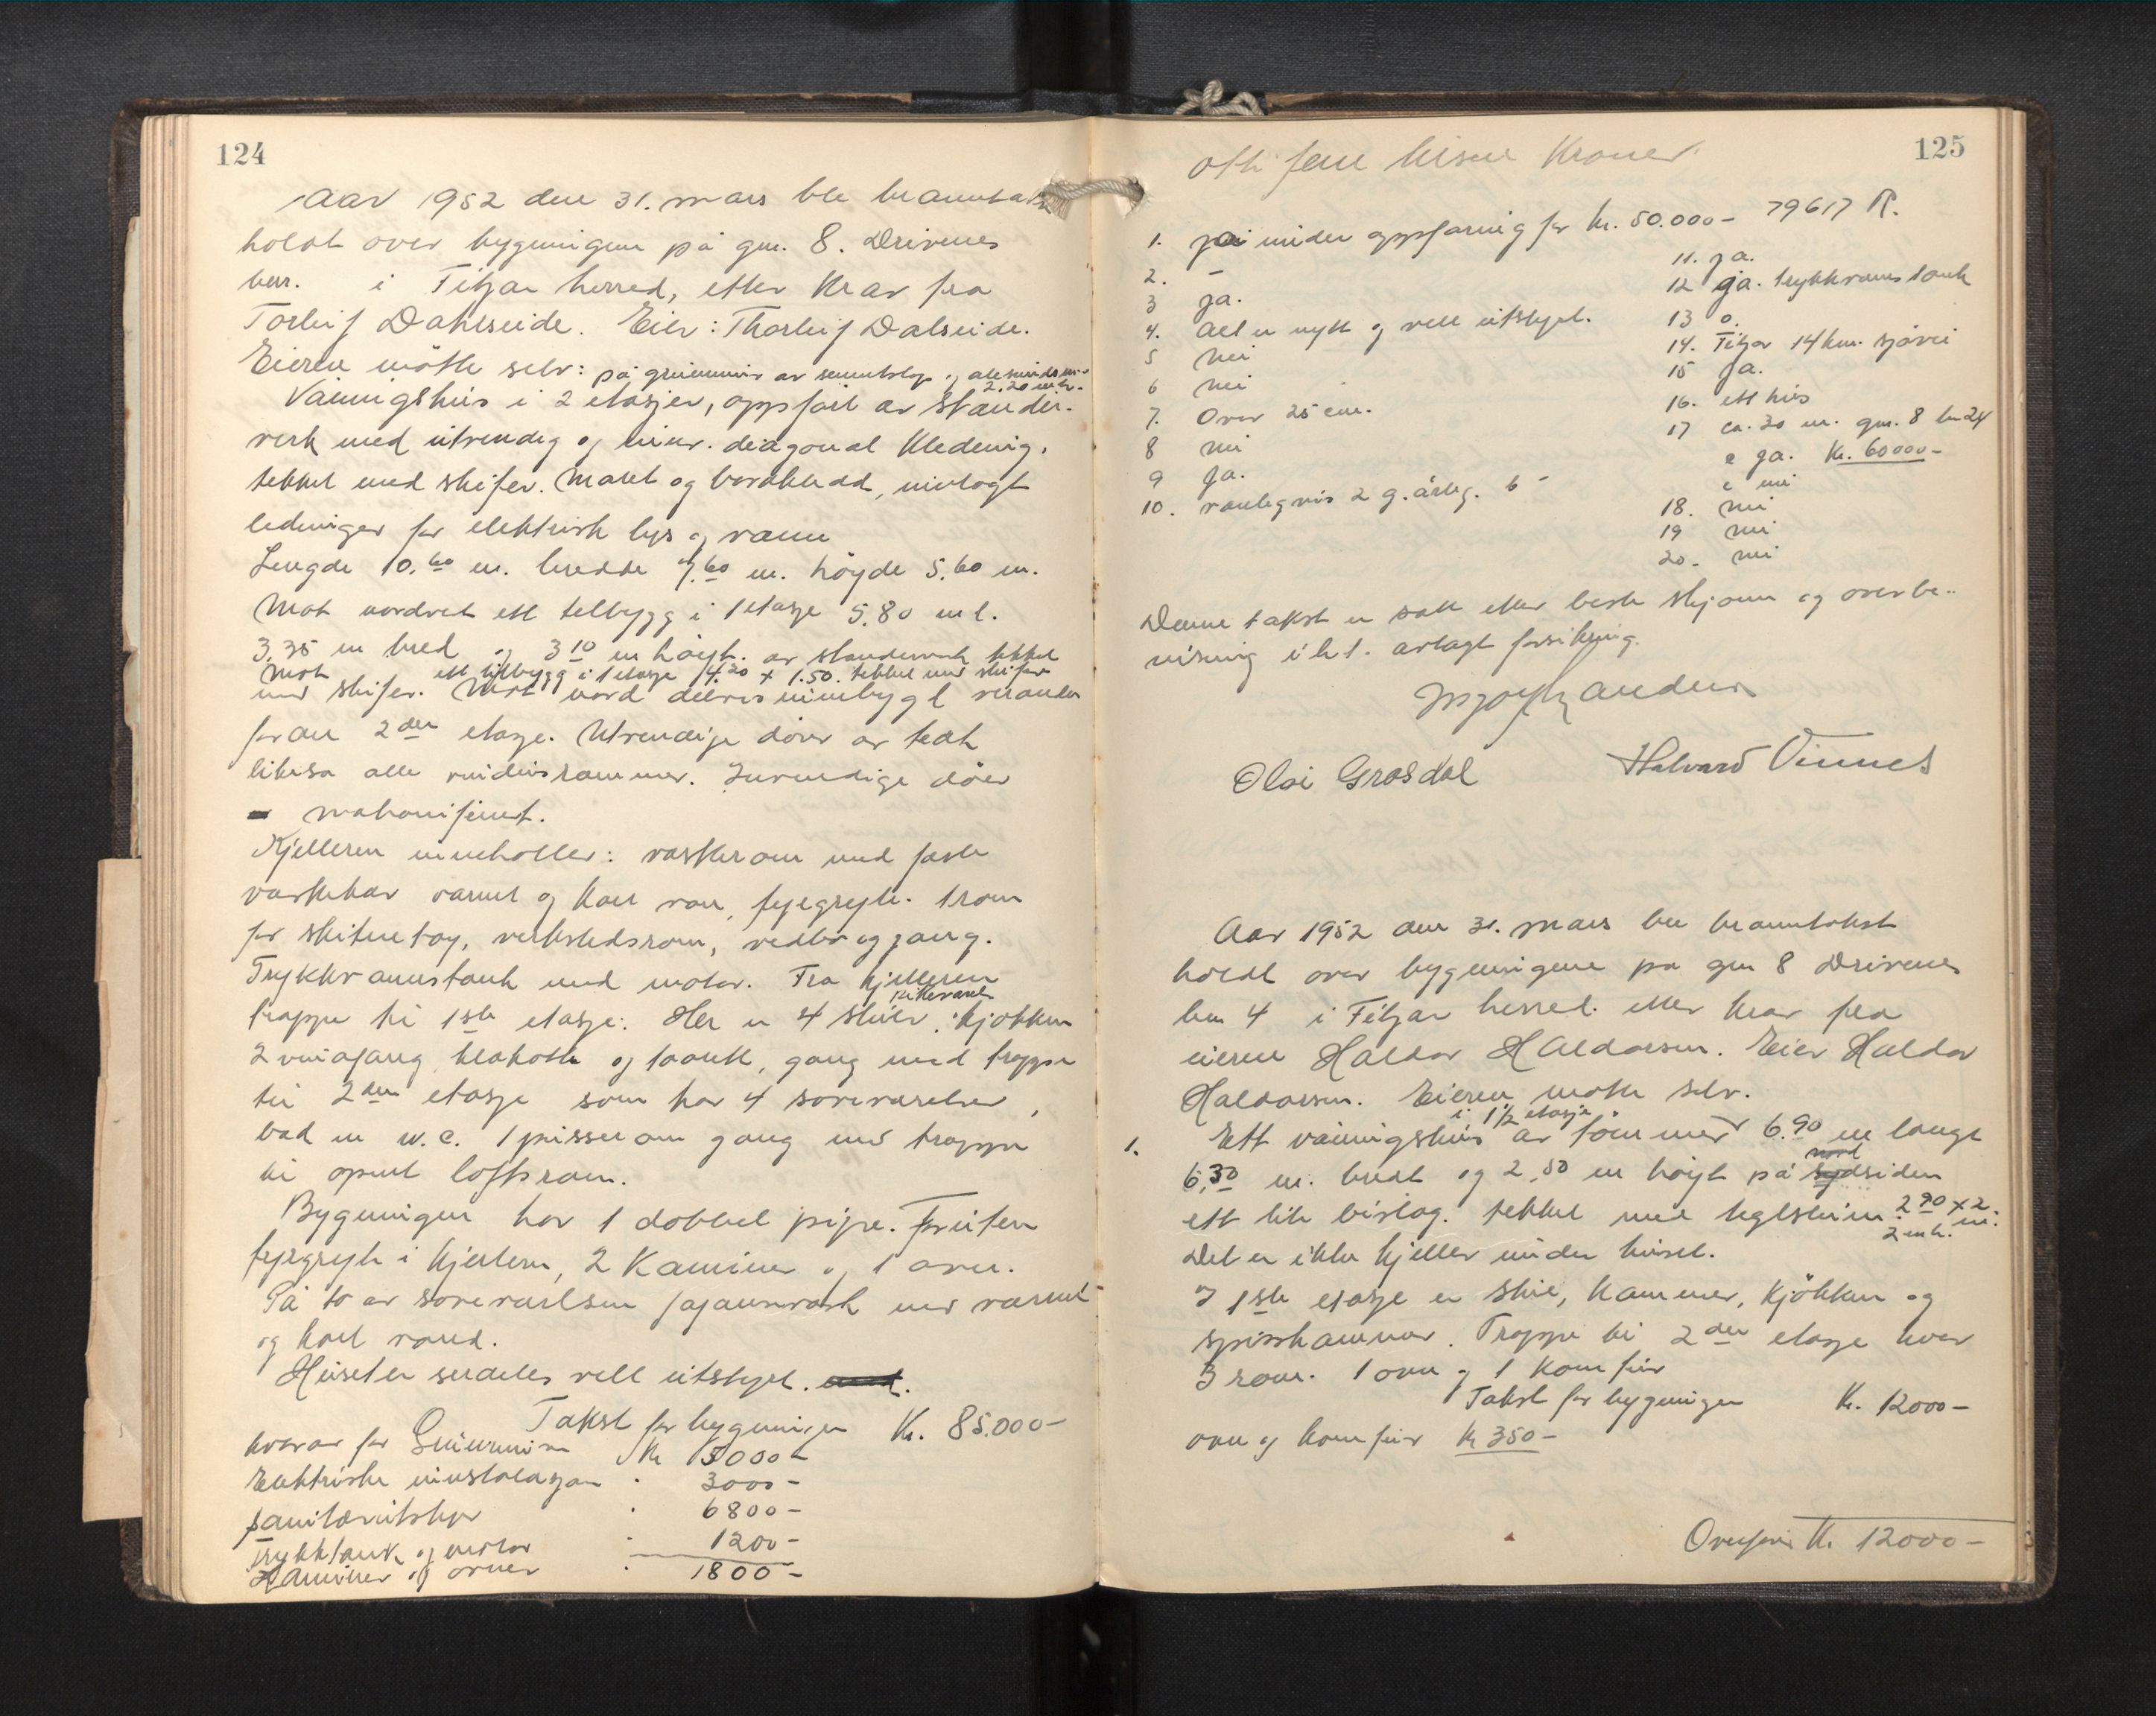 124
Aar 1952 den 31. mars ble branntakst
holdt over bygningen på gnr. 8. Drivenes
bnr. i Fitjar herred, etter Krav fra
Torleif Dahlseide. Eier: Thorleif Dalseide.
Eieren møtte selv: på grunnmur av sementstøp
2.20 m h.
Vaaningshus i 2 etasjer, oppført av stender-
verk med utvendig og innv. diagonal Kledning.
tekket med skifer. Malet og bordkledd, innlagt
ledninger for elektrisk lys og vann
Lengde 10.60 m. bredde 7.60 m. høyde 5.60 m.
Mot nordvest ett tilbygg i 1 etasje 5.80 m l.
3.35 m bred og 3.10 m høyt. av stenderverk tekket
Mot ett tilbygg i 1 etasje 4.20 x 1.50. tekket med skifer
med skifer. Mot nord delvis innbygt veranda
for den 2den etasje. Utvendige dører av teak
likesa alle vindusrammer. Innvendige dører
mahonifinert.
Kjelleren inneholler: vaskerom med faste
vaskekar varmt og kalt vann, fyrgryte. 1 rom
for skitnetøy, verkstedsrom, vedbo og gang.
Trykkvannstank med motor. Fra kjelleren
pikeværelse
trappe til 1ste etasje. Her er 4 stuer, kjøkken
2 vinafang, klokott og toalett, gang med trappe
til 2den etasje som har 4 soveværelser,
bad m w.c. 1 pisserom gang med trappe
til åpent loftsrom.
Bygningen har 1 dobbel pipe. Foruten
fyrgryte i kjelleren, 2 Kaminer og 1 ovn.
På to av soveværelsene fajansevask med varmt
og kalt vand.
Huset er særdeles vell utstyrt.
Takst for bygningen Kr. 85.000-
hvorav for Grunnmuren Kr 15000-
Elektriske installasjon " 3000-
Sanitærutstyr " 6800-
Trykktank og motor " 1200-
Kaminer og ovner " 1800-
125
otti fem tusen Kroner
1. Ja under oppføring for kr. 50.000- 79617 R.
2. -
3 ja.
4. Alt er nytt og vell utstyrt.
5 nei
6 nei
7. Over 25 cm.
8 nei
9 Ja.
10. vanlegvis 2 g. årleg. b -
11. ja.
12 ja. trykkvanns tank
13 o.
14. Fitjar 14 km. sjøvei
15 Ja.
16. ett hus
17 ca. 30 m. gnr. 8 bn 24
a ja. Kr. 60000-
c nei
18. nei
19 nei
20. nei
Denne takst er satt etter beste skjønn og overbe-
visning i h.t. avlagt forsikring.
Olai Grøsdal Halvard Vinnes
Aar 1952 den 31. mars ble branntakst
holdt over bygningene på gnr 8 Drivenes
bnr 4 i Fitjar herred. etter krav fra
eieren Haldor Haldorsen. Eier Haldor
Haldorsen. Eieren møtte selv.
i 1 1/2 etasje
1. Ett vaaningshus av tømmer 6.90 m langt
nord
6.30 m. bredt og 2.50 m høyt på sydsiden
ett lite bislag. tekket med teglstein. 2.90 x 2. m.
2 m h.
Det er ikke kjeller under huset.
I 1ste etasje er stue, kammer, kjøkken og
spisskammer. Trappe til 2den etasje hvor
3 rom. 1 ovn og 1 komfur
Takst for bygningen Kr. 12000-
ovn og komfur Kr 350-
Overføres Kr. 12000-